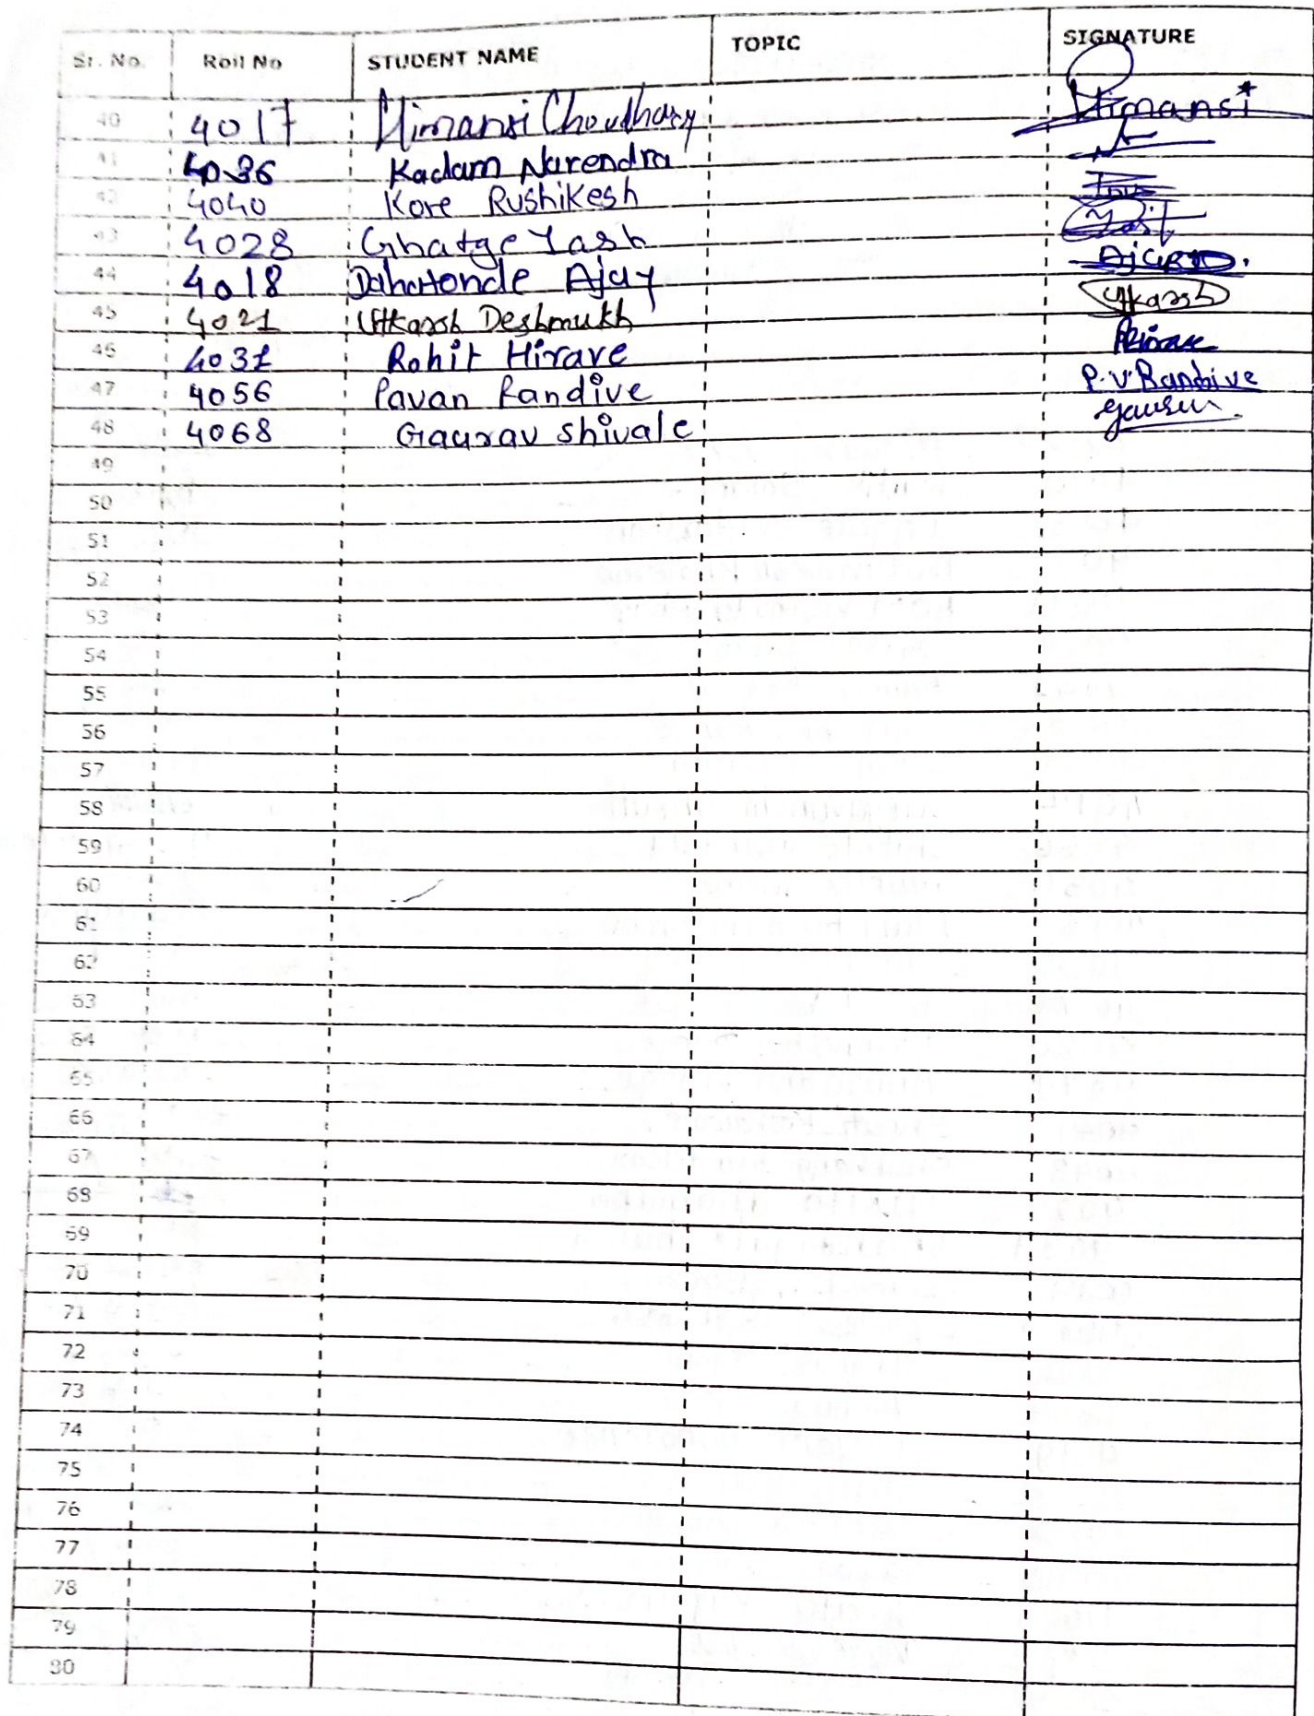 Sr. No. Roll No STUDENT NAME TOPIC SIGNATURE
40 4017 Himansi Choudhary Himansi
41 4036 Kadam Narendra
42 4040 Kore Rushikesh
43 4028 Ghatge Yash
44 4018 Dahatonde Ajay
45 4021 Utkarsh Deshmukh Utkarsh
46 4031 Rohit Hirave
47 4056 Pavan Randive P.V.Randive
48 4068 Gaurav Shivale
49
50
51
52
53
54
55
56
57
58
59
60
61
62
63
64
65
66
67
68
69
70
71
72
73
74
75
76
77
78
79
80